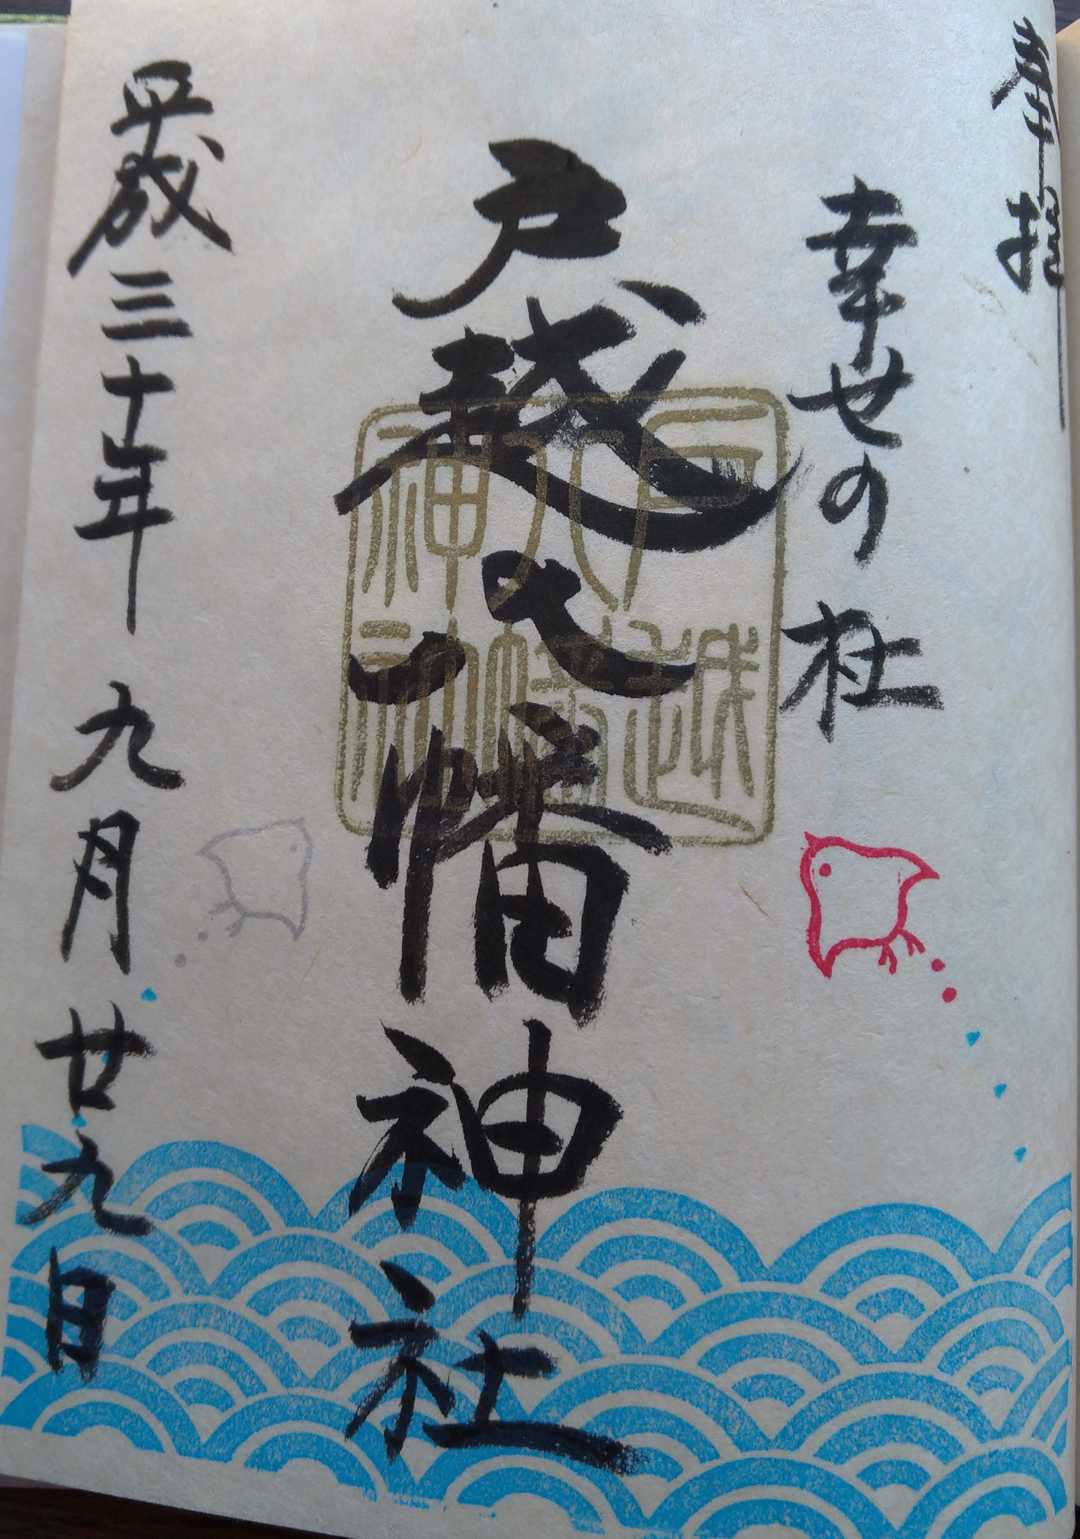 奉拝
幸せの杜
戸越八幡神社
戸越
八幡
神社
平成三十年九月廿九日